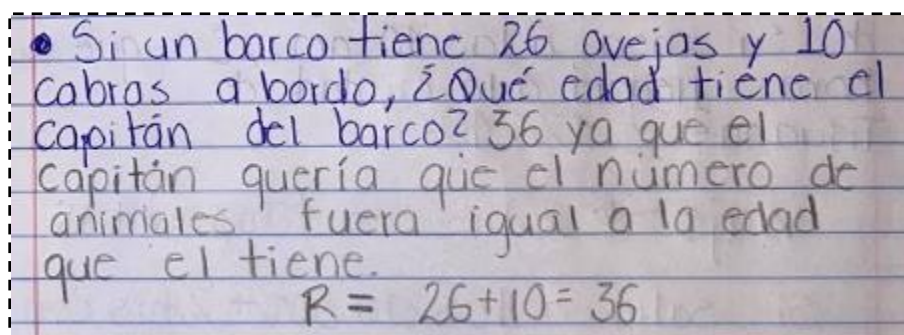 • Si un barco tiene 26 ovejas y 10
cabras a bordo, ¿Qué edad tiene el
capitán del barco? 36 ya que el
capitán quería que el número de
animales fuera igual a la edad
que el tiene.
R = 26+10= 36